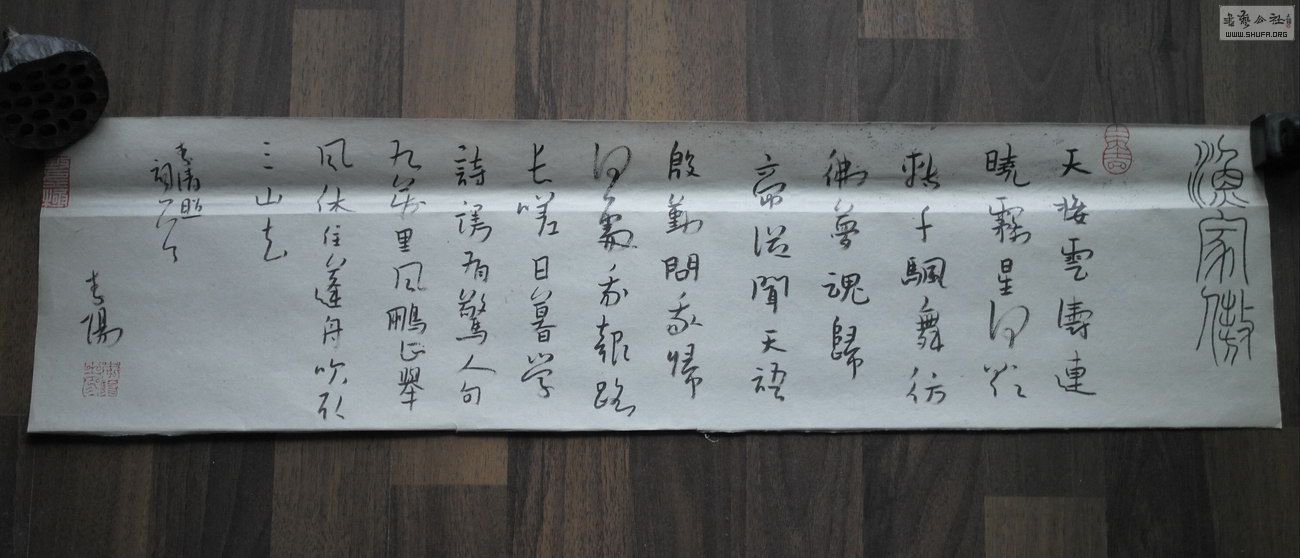 漁家傲
天接雲濤連
曉霧星河欲
轉千颿舞彷
彿夢魂歸
帝所聞天語
殷勤問我歸
何處我報路
長嗟日暮學
詩謾有驚人句
九萬里風鵬正舉
風休住蓬舟吹取
三山去
清照
詞
陽
書藝公社
WWW.SHUFA.ORG